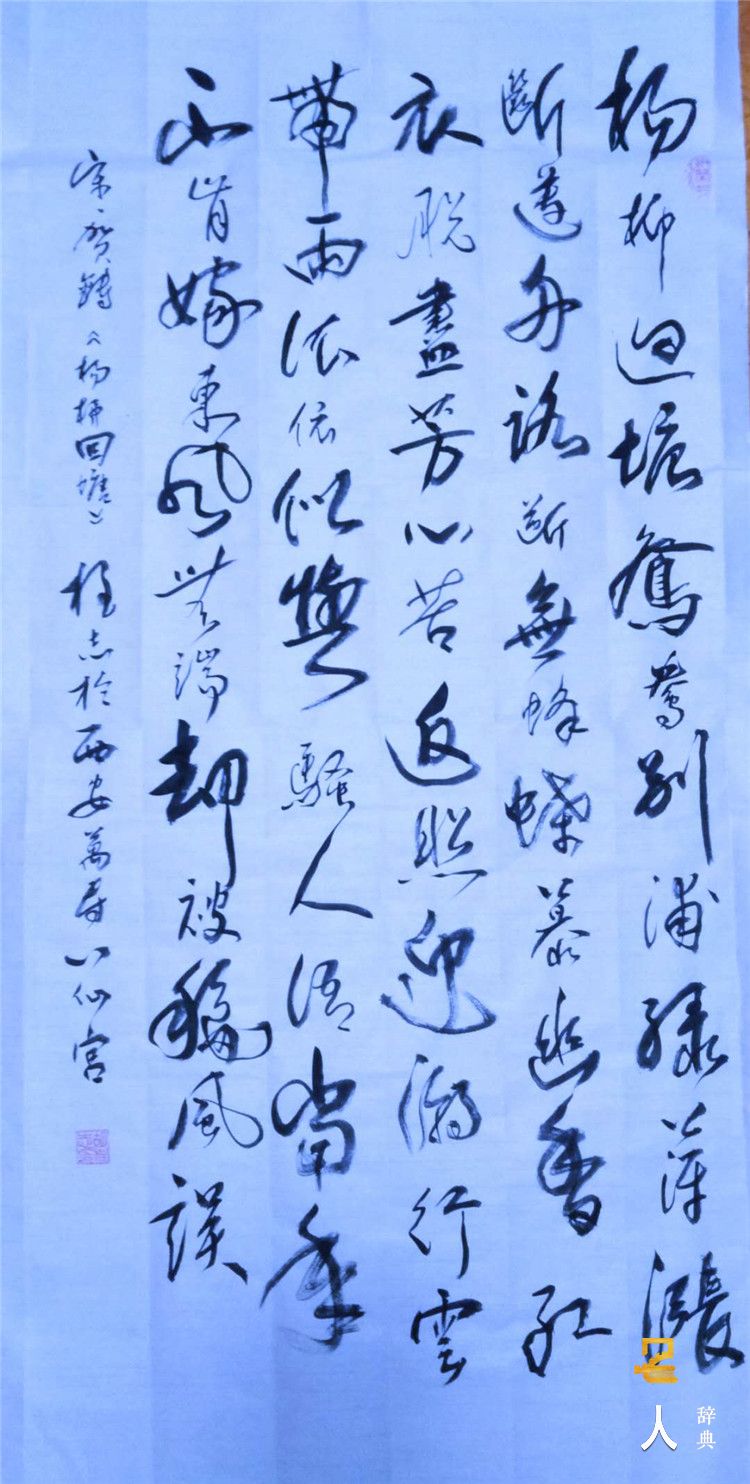 楊柳迴塘鴛鴦別浦綠萍漲
斷蓮舟路斷無蜂蝶慕幽香紅
衣脫盡芳心苦返照迎潮行雲
帶雨依依似與騷人語當年
不肯嫁東風無端却被秋風誤
宋·賀鑄《楊柳回塘》 志於西安萬壽八仙宮
人
辞典